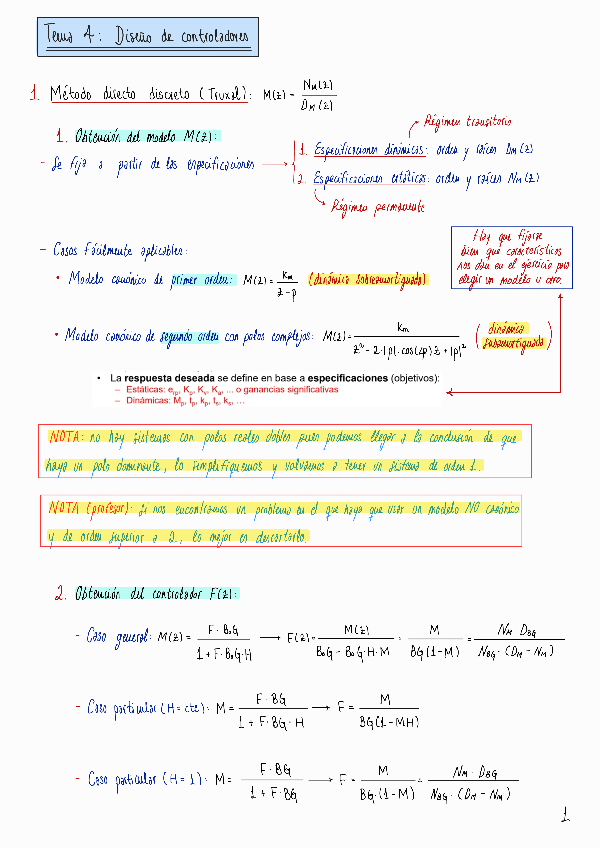 Tema 4: Diseño de controladores
1. Método directo discreto (Truxal): M(z) = N_M(z) / D_M(z)
1. Obtención del modelo M(z):
Régimen transitorio
- Se fija a partir de las especificaciones
1. Especificaciones dinámicas: orden y raíces D_M(z)
2. Especificaciones estáticas: orden y raíces N_M(z)
Régimen permanente
Hay que fijarse
bien que características
nos dan en el ejercicio para
elegir un modelo u otro.
- Casos fácilmente aplicables:
• Modelo canónico de primer orden: M(z) = K_m / (z - p) (dinámica sobreamortiguada)
• Modelo canónico de segundo orden con polos complejos: M(z) = K_m / (z² - 2·|p|·cos(∠p) z + |p|²) (dinámica subamortiguada)
• La respuesta deseada se define en base a especificaciones (objetivos):
– Estáticas: e_rp, K_p, K_v, K_a, ... o ganancias significativas
– Dinámicas: M_p, t_p, k_p, t_s, k_s, ...
NOTA: no hay sistemas con polos reales dobles pues podemos llegar a la conclusión de que
haya un polo dominante, lo simplifiquemos y volvamos a tener un sistema de orden 1.
NOTA (profesor): si nos encontramos un problema en el que haya que usar un modelo NO canónico
y de orden superior a 2, lo mejor es descartarlo.
2. Obtención del controlador F(z):
- Caso general: M(z) = F·B₀G / (1 + F·B₀G·H) → F(z) = M(z) / (B₀G - B₀G·H·M) = M / (BG(1-M)) = N_M·D_BG / (N_BG·(D_M - N_M))
- Caso particular (H = cte): M = F·BG / (1 + F·BG·H) → F = M / (BG(1-MH))
- Caso particular (H = 1): M = F·BG / (1 + F·BG) → F = M / (BG·(1-M)) = N_M·D_BG / (N_BG·(D_M - N_M))
1